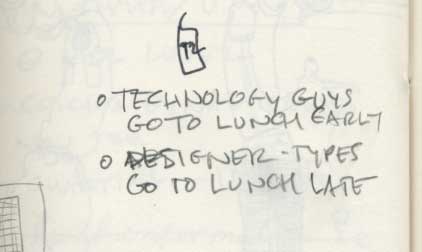 T2
o TECHNOLOGY GUYS
GO TO LUNCH EARLY
o DESIGNER-TYPES
GO TO LUNCH LATE